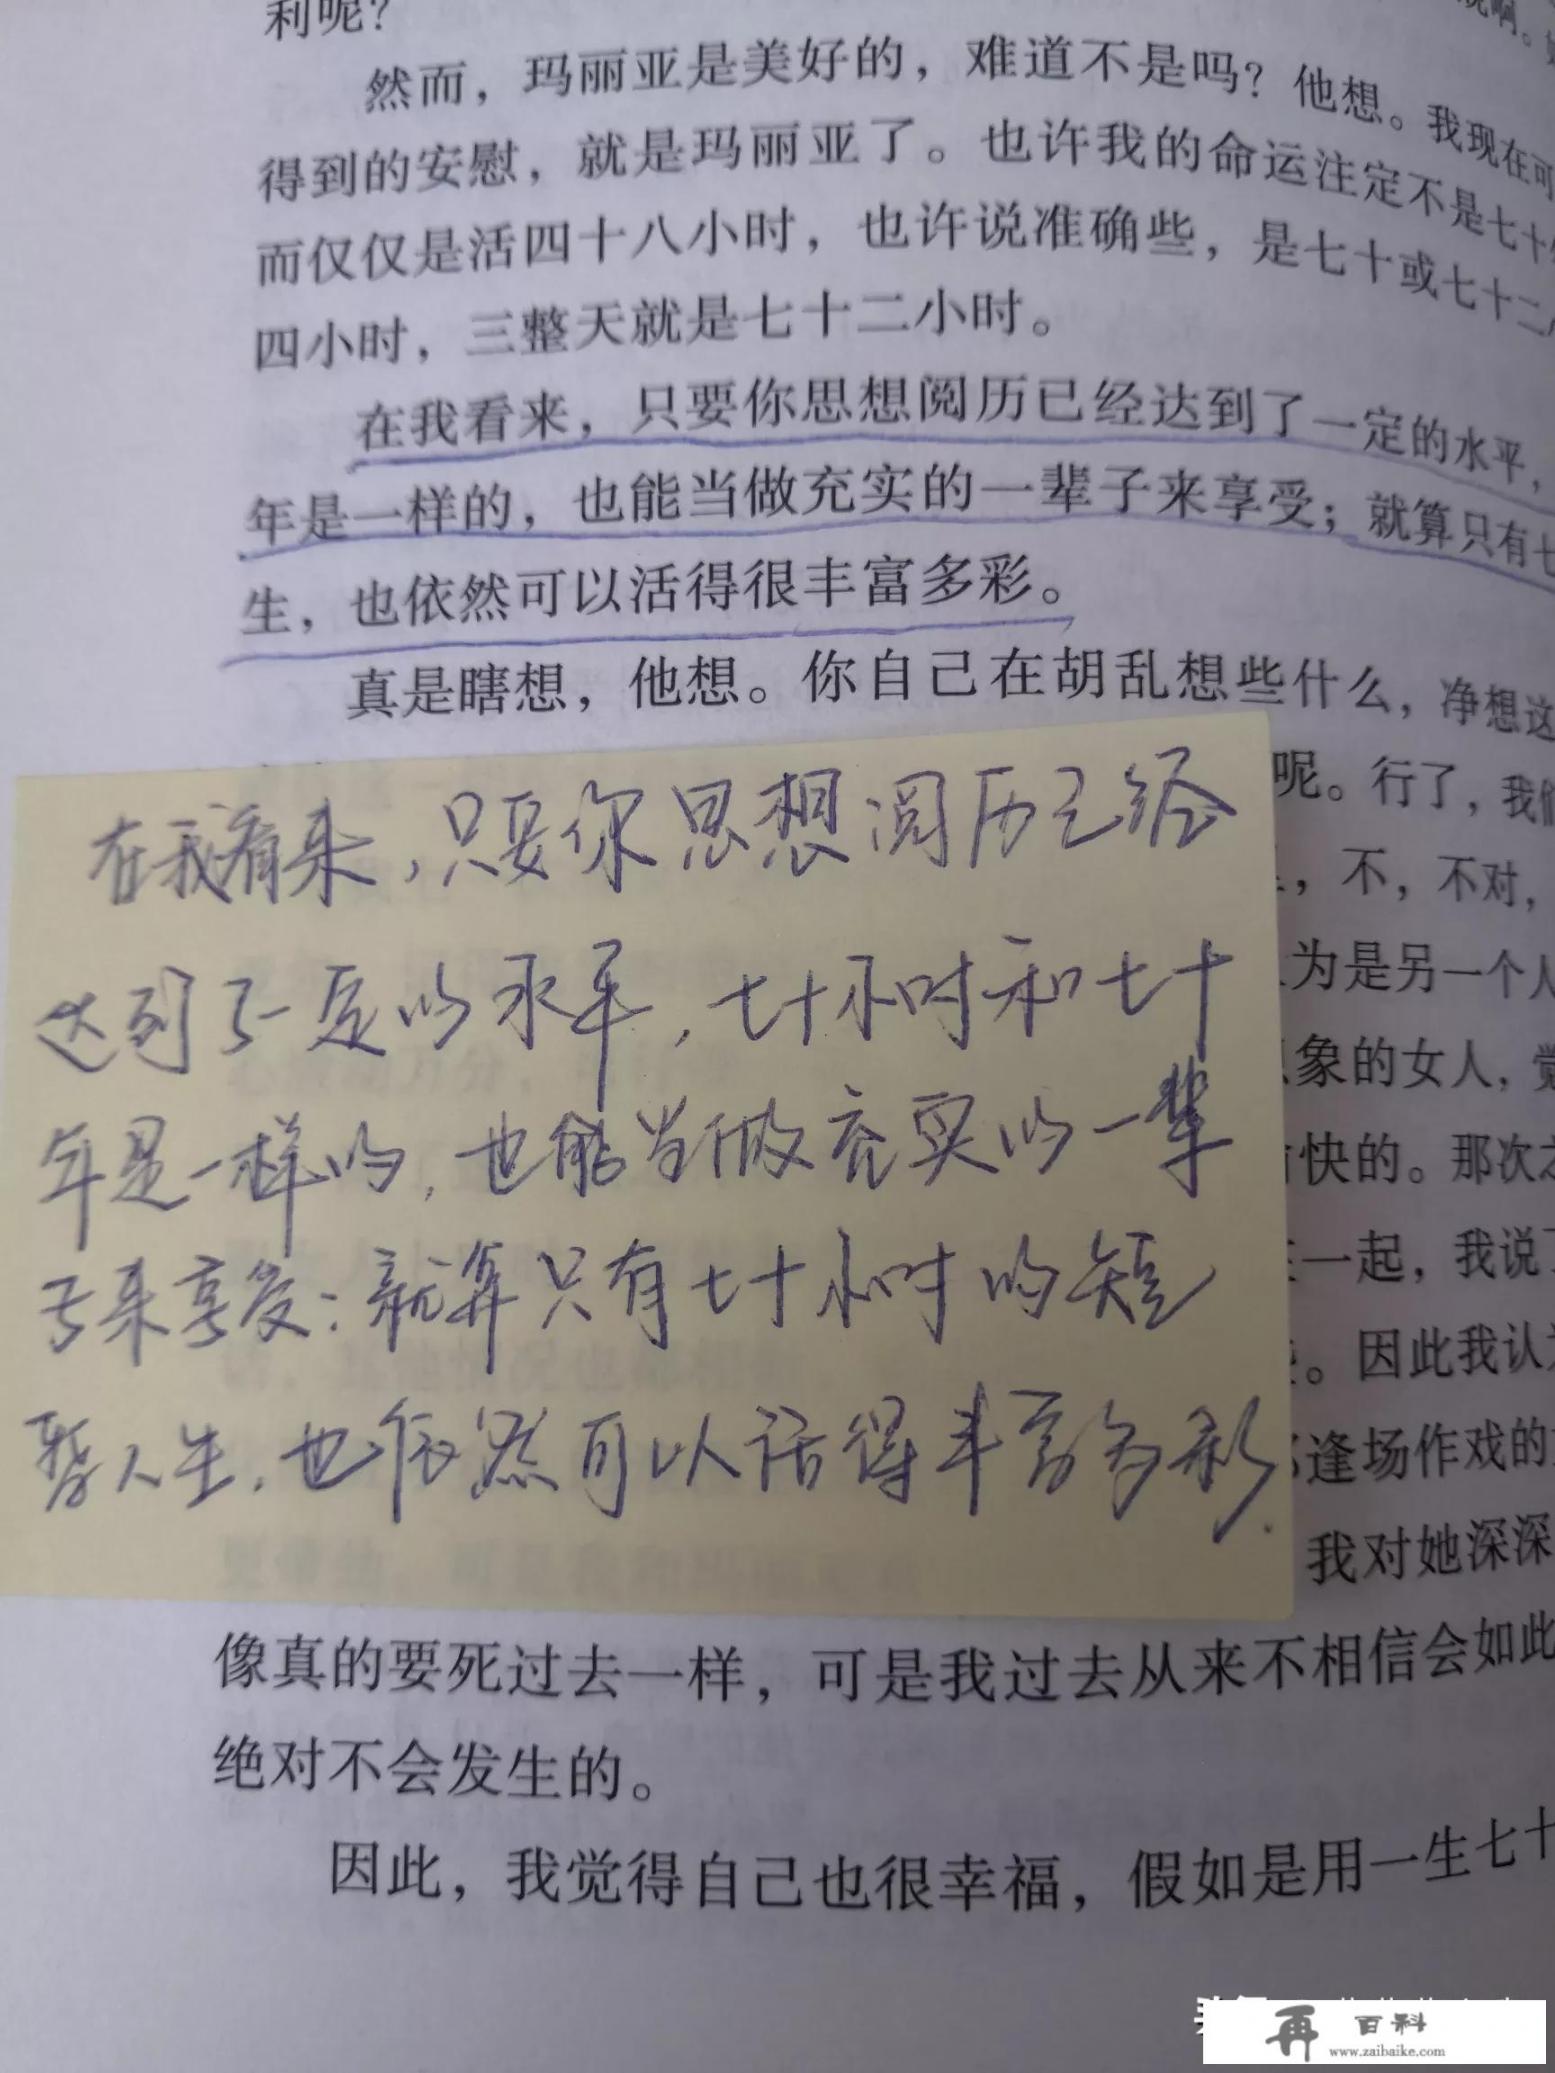 利呢？
然而，玛丽亚是美好的，难道不是吗？他想。我现在可
得到的安慰，就是玛丽亚了。也许我的命运注定不是七十
而仅仅是活四十八小时，也许说准确些，是七十或七十二
四小时，三整天就是七十二小时。
在我看来，只要你思想阅历已经达到了一定的水平，
年是一样的，也能当做充实的一辈子来享受；就算只有七
生，也依然可以活得很丰富多彩。
真是瞎想，他想。你自己在胡乱想些什么，净想这
呢。行了，我们
，不，不对，
为是另一个人
象的女人，觉
快的。那次
一起，我说了
。因此我认为
逢场作戏的
我对她深深
在我看来，只要你思想阅历已经
达到了一定的水平，七十小时和七十
年是一样的，也能当做充实的一辈
子来享受；就算只有七十小时的短
暂人生，也依然可以活得丰富多彩.
像真的要死过去一样，可是我过去从来不相信会如此
绝对不会发生的。
因此，我觉得自己也很幸福，假如是用一生七十
再 百科
www.zaibaike.com